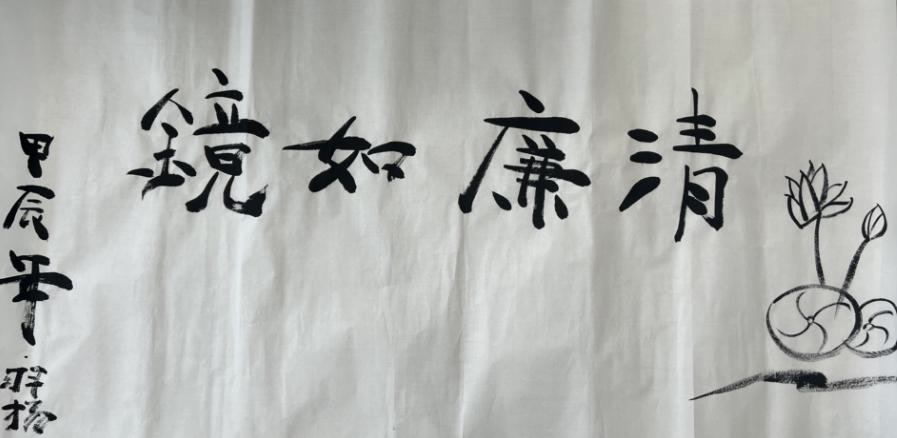 清廉如鏡
甲辰年